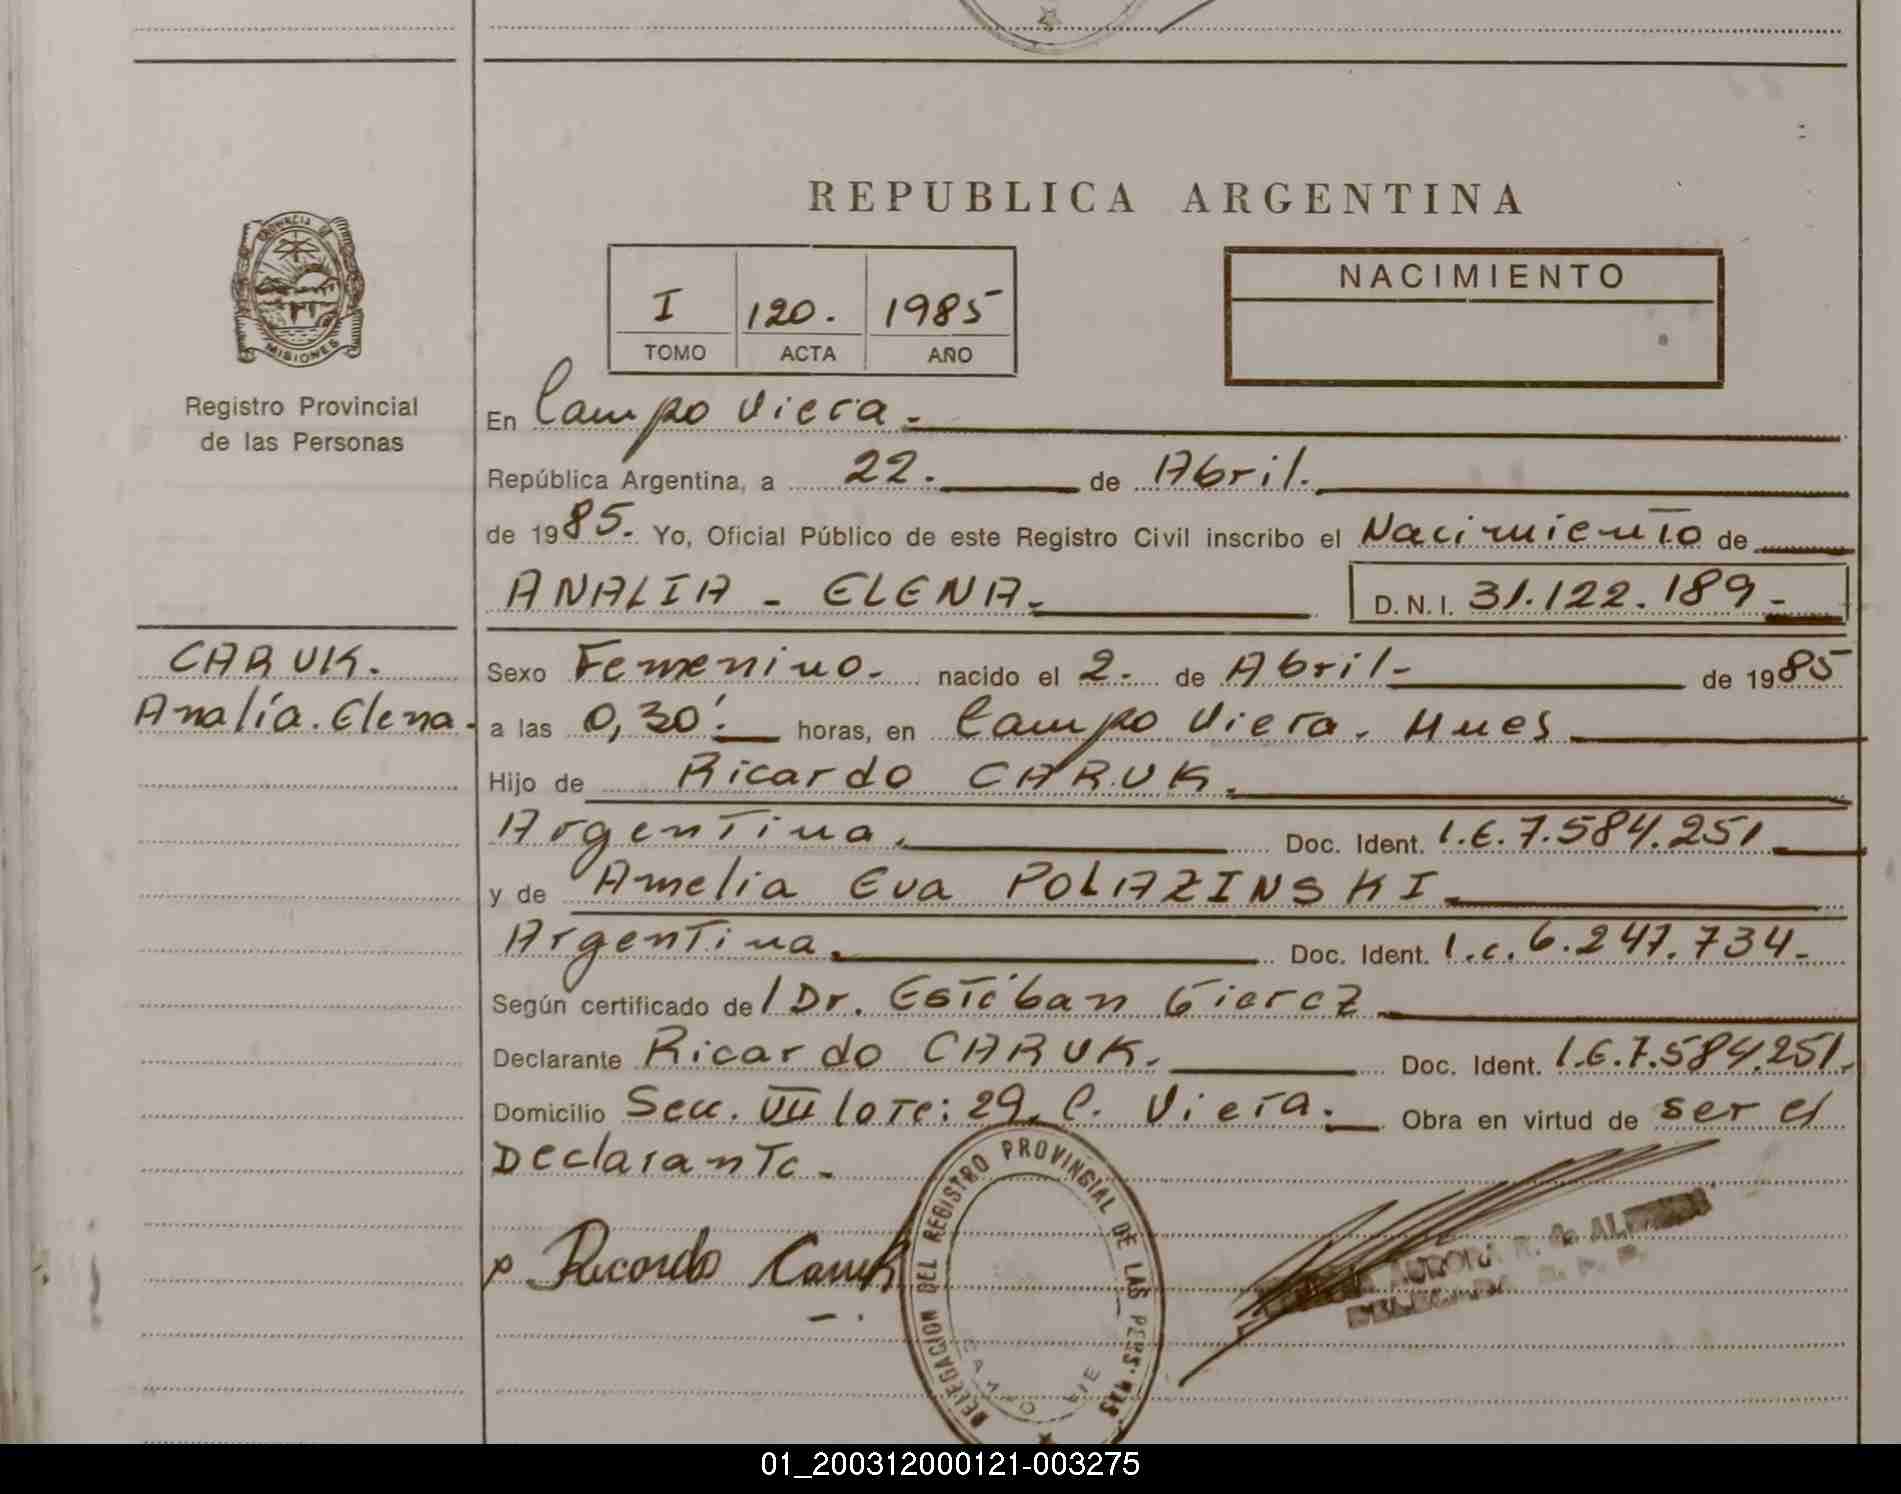 REPUBLICA ARGENTINA
PROVINCIA DE
MISIONES
Registro Provincial
de las Personas
I 120. 1985
TOMO ACTA AÑO
NACIMIENTO
En Campo Viera.
República Argentina, a 22. de Abril.
de 1985. Yo, Oficial Público de este Registro Civil inscribo el Nacimiento de
ANALIA - ELENA. D.N.I. 31.122.189-
CARUK.
Analía. Elena.
Sexo Femenino. nacido el 2. de Abril- de 1985
a las 0,30'. horas, en Campo Viera. Mnes
Hijo de Ricardo CARUK.
Argentina. Doc. Ident. l.E.7.584.251
y de Amelia Eva POLAZINSKI
Argentina. Doc. Ident. l.c. 6.247.734-
Según certificado de/ Dr. Estéban
Declarante Ricardo CARUK. Doc. Ident. l.E.7.584.251.
Domicilio Secc. VII lote: 29. C. Viera. Obra en virtud de ser el
Declarante-
x Ricardo Caruk
DELEGACION DEL REGISTRO PROVINCIAL DE LAS PERSONAS
AURORA R. de
01_200312000121-003275